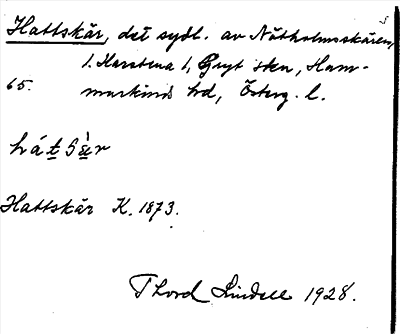 Hattskär, det sydl. av Nåtholmsskären,
1. Karstena 1, Gryt skn, Ham-
65. markinds hd, Österg. l.
hát Sær
Hattskär K. 1873.
Thord Lindell 1928.